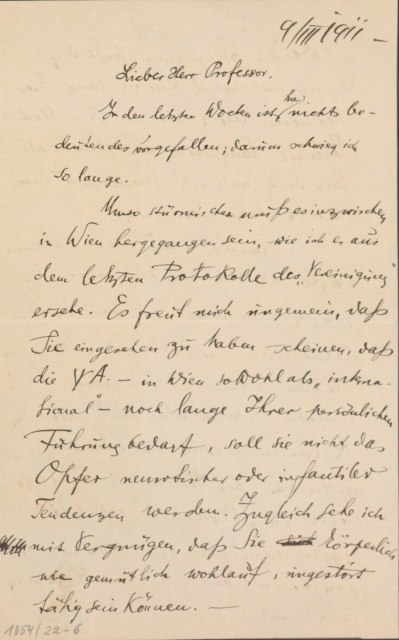 9/III 1911 –
Lieber Herr Professor.
In den letzten Wochen ist hier nichts be-
deutendes vorgefallen; darum schwieg ich
so lange.
Umso stürmischer muß es inzwischen
in Wien hergegangen sein, wie ich es aus
dem letzten Protokolle des „Vereinigung"
ersehe. Es freut mich ungemein, daß
Sie eingesehen zu haben scheinen, daß
die ΨA. – in Wien sowohl als „interna-
tional" – noch lange Ihrer persönlichen
Führung bedarf, soll sie nicht das
Opfer neurotischer oder infantiler
Tendenzen werden. Zugleich sehe ich
mit Vergnügen, daß Sie körperlich
wie gemütlich wohlauf, ungestört
tätig sein können. –
1854/22-6